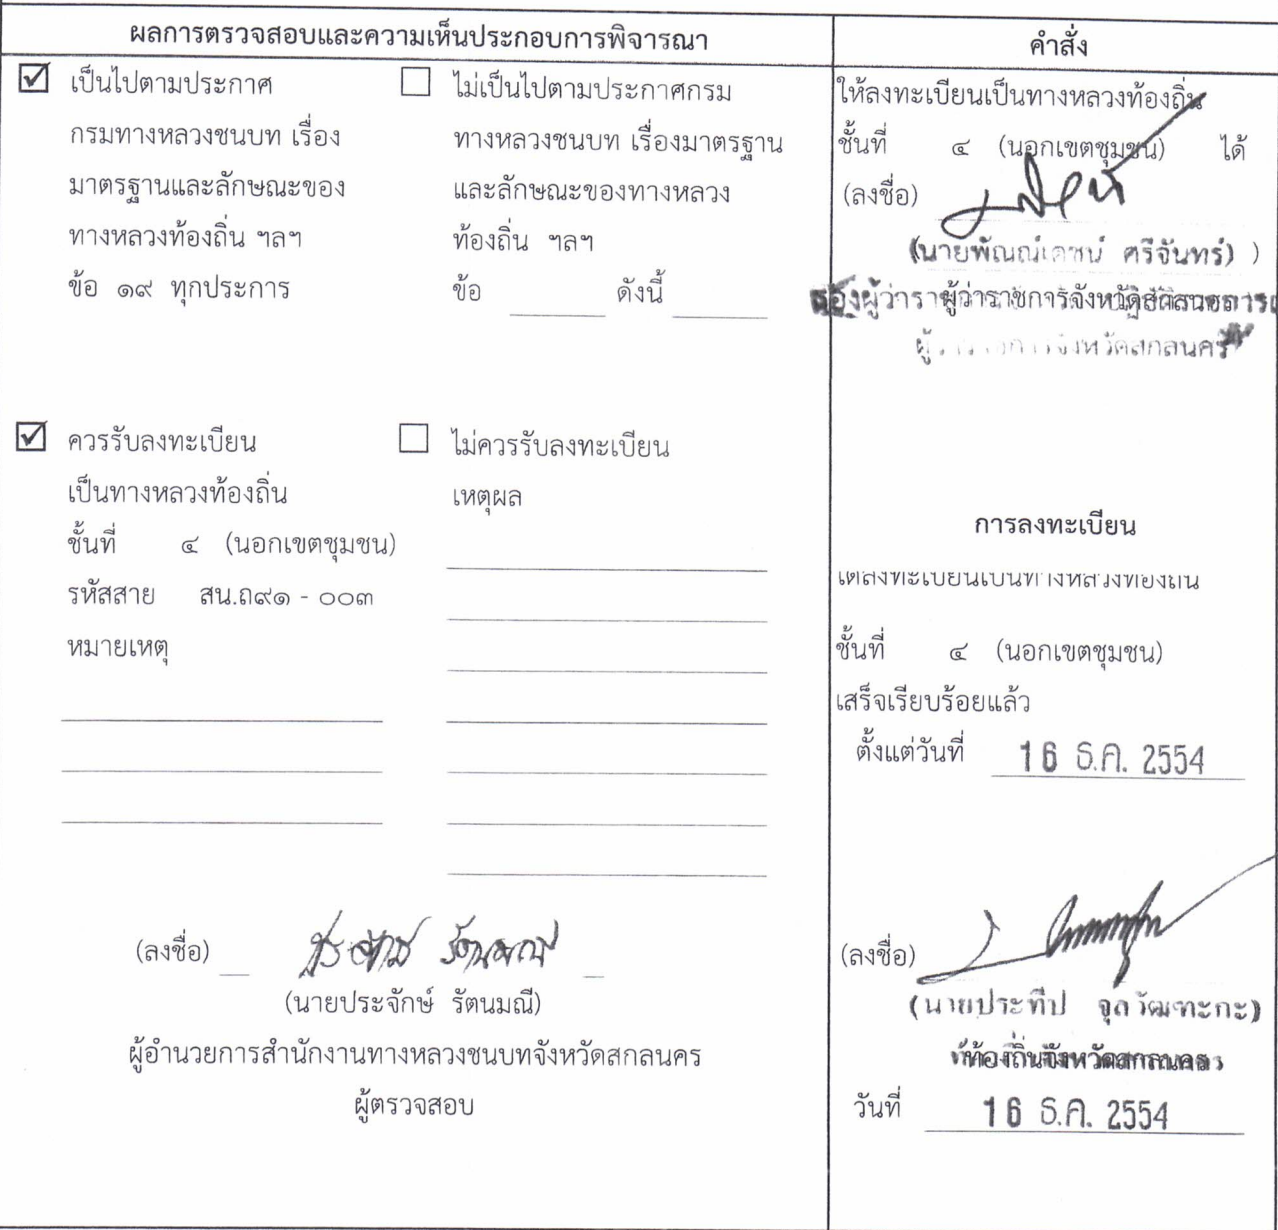 ผลการตรวจสอบและความเห็นประกอบการพิจารณา
เป็นไปตามประกาศ
กรมทางหลวงชนบท เรื่อง
มาตรฐานและลักษณะของ
ทางหลวงท้องถิ่น ฯลฯ
ข้อ ๑๙ ทุกประการ
ไม่เป็นไปตามประกาศกรม
ทางหลวงชนบท เรื่องมาตรฐาน
และลักษณะของทางหลวง
ท้องถิ่น ฯลฯ
ข้อ ดังนี้
ควรรับลงทะเบียน
เป็นทางหลวงท้องถิ่น
ชั้นที่ ๔ (นอกเขตชุมชน)
รหัสสาย สน.ถ๙๑ - ๐๐๓
หมายเหตุ
ไม่ควรรับลงทะเบียน
เหตุผล
(ลงชื่อ) ประจักษ์ รัตนมณี
(นายประจักษ์ รัตนมณี)
ผู้อำนวยการสำนักงานทางหลวงชนบทจังหวัดสกลนคร
ผู้ตรวจสอบ
คำสั่ง
ให้ลงทะเบียนเป็นทางหลวงท้องถิ่น
ชั้นที่ ๔ (นอกเขตชุมชน) ได้
(ลงชื่อ)
(นายพัณณ์เดชน์ ศรีจันทร์) )
ผู้ว่าราชการจังหวัดสกลนคร
การลงทะเบียน
ได้ลงทะเบียนเป็นทางหลวงท้องถิ่น
ชั้นที่ ๔ (นอกเขตชุมชน)
เสร็จเรียบร้อยแล้ว
ตั้งแต่วันที่ 16 ธ.ค. 2554
(ลงชื่อ)
(นายประทีป จุลวัฒฑะกะ)
ท้องถิ่นจังหวัดสกลนคร
วันที่ 16 ธ.ค. 2554